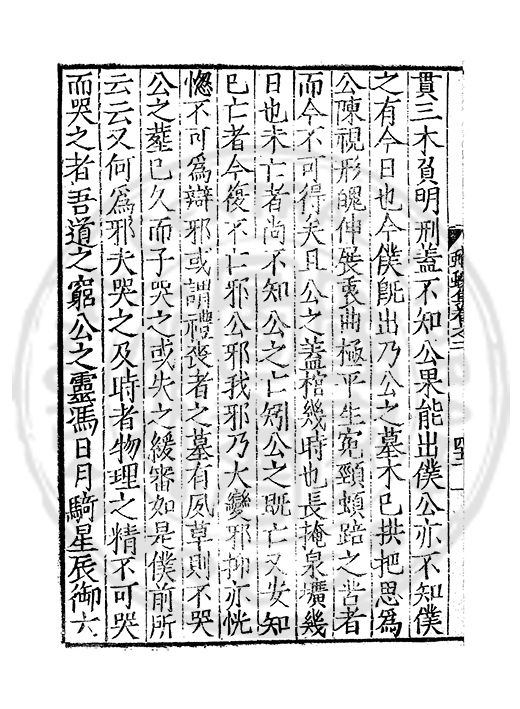 貫三木負明刑蓋不知公果能出僕公亦不知僕
之有今日也今僕旣出乃公之墓木已拱把思爲
公陳視形魄伸展衷曲極平生寃頸頰踣之苦者
而今不可得矣且公之蓋棺幾時也長掩泉壙幾
日也未亡者尚不知公之亡矧公之既亡又安知
已亡者今復不亡邪公邪我邪乃大變邪抑亦恍
惚不可爲辯邪或謂禮喪者之墓有夙草則不哭
公之薶已久而子哭之或失之緩審如是僕前所
云云又何爲邪夫哭之及時者物理之精不可哭
而哭之者吾道之窮公之靈馮日月騎星辰御六